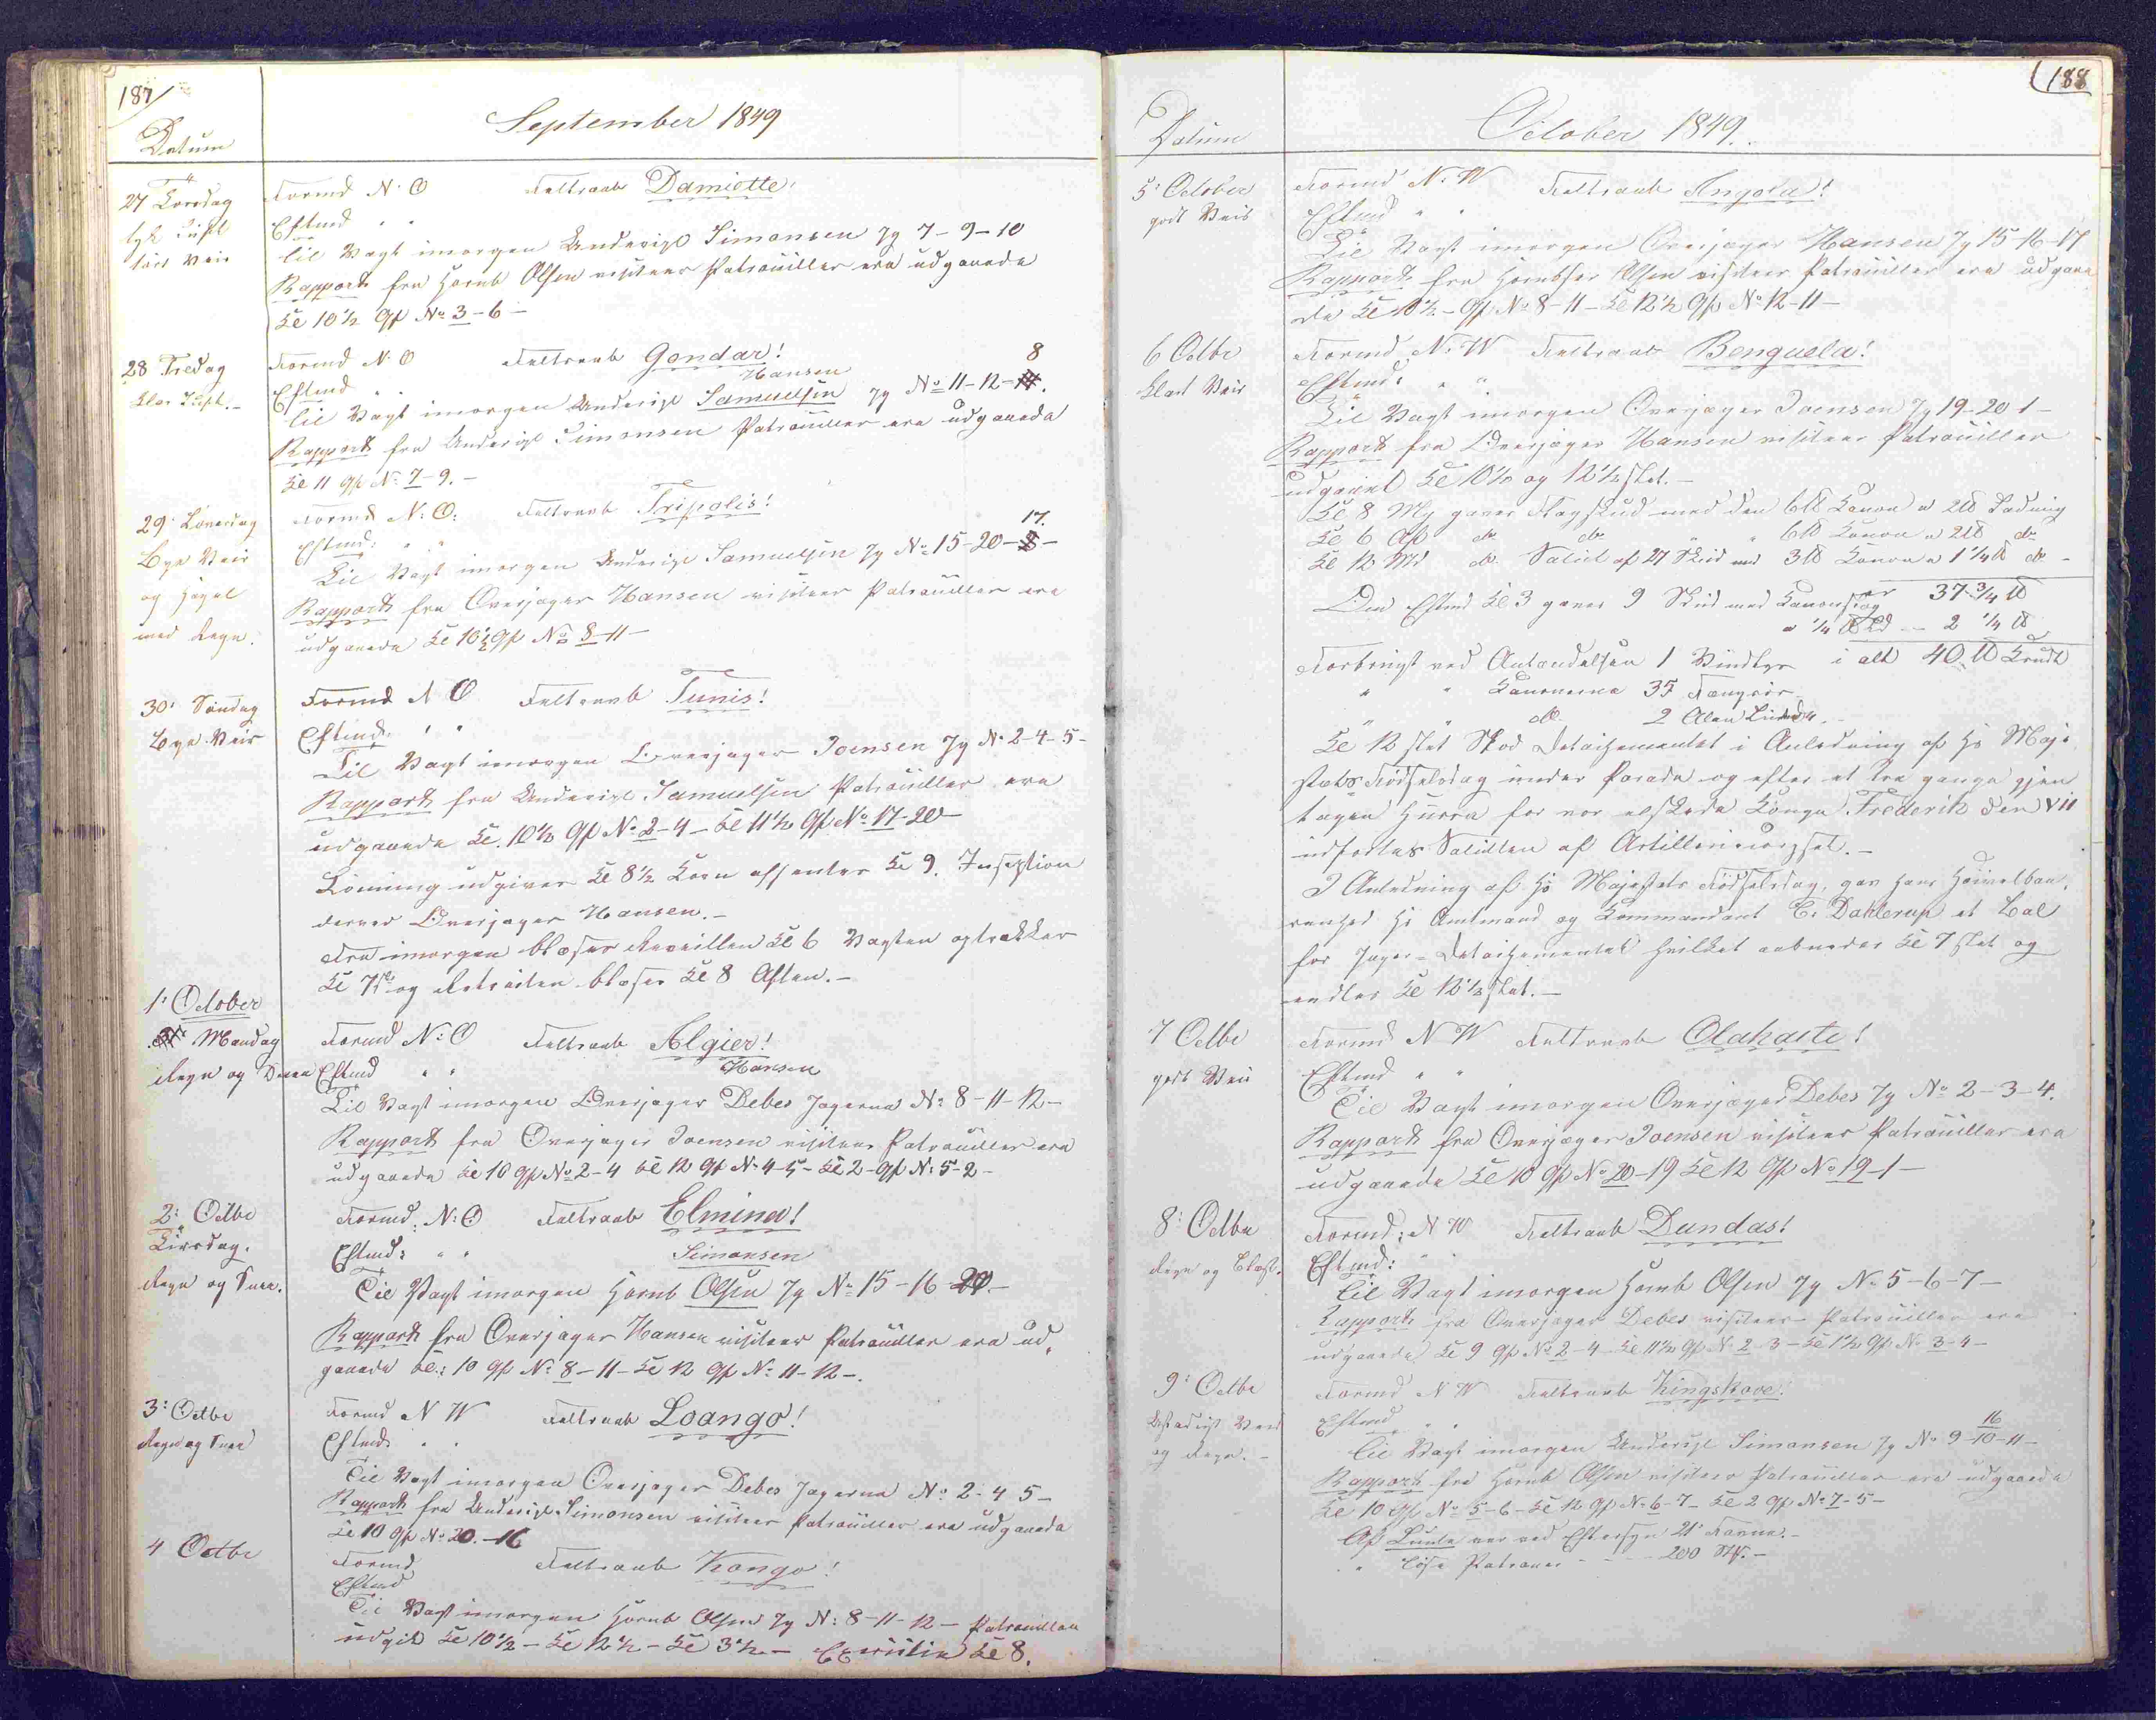 187
Datum
September 1849
27 Torsdag
tyk Luft
Formd N. O Feltraab Damiette!
Eftmd " "
Til Vagt imorgen Underjgr Simonsen Jg 7-9-10
Rapport fra Hornb Olsen visiteer Patrouiller ere udgaaede
Kl 10½ Gf No 3-6-
28 Fredag
klar Luft.-
Formd N. O Feltraab Gondar!
Eftmd " "
Hansen 8
Til Vagt imorgen Underjgr Samuelsen Jg No 11-12-
Rapport fra Underjgr Simonsen Patrouiller ere udgaaede
Kl 11 Gf No 7-9.-
29. Løverdag
Bye Veir
og Hagel
med Regn.
Formd N: O: Feltraab Tripolis!
Eftmd: " "
17.
Til Vagt imorgen Underjgr Samuelsen Jg No 15-20-8-
Rapport fra Overjæger Hansen visiteer Patrouiller ere
udgaaede Kl 10½ Gf No 8-11-
30' Søndag
Bye Veir
Formd N O Feltraab Tunis!
Eftmd " "
Til Vagt imorgen Overjæger Joensen Jg No 2-4-5-
Rapport fra Underjgr Samuelsen Patrouiller ere
udgaaede Kl. 10½ Gf No 2-4- Kl 11½ Gf. No 17-20-
Lönning udgives Kl 8½ Korn afhentes Kl 9. Inspektion
derved Overjæger Hansen.-
Fra imorgen blæses Reveillen Kl 6 Vagten optrækker
Kl 7 og Retraiten blæses Kl 8 Aften.-
1' October
Mandag
Regn og Snee
Formd N: O Feltraab Algier!
Eftmd " "
Hansen
Til Vagt imorgen Overjæger Debes Jægerne No 8-11-12-
Rapport fra Overjæger Joensen visiteer Patrouiller ere
udgaaede Kl 10 Gf No 2-4 Kl 12 Gf No 4-5- Kl 2-Gf No 5-2-
2: Octbr
Tirsdag.
Regn og Snee.
Formd: N: O Feltraab Elmina!
Eftmd: " "
Simonsen
Til Vagt imorgen Hornb Olsen Jg No 15-16-20.-
Rapport fra Overjæger Hansen visiteer Patrouiller ere ud,
gaaede Kl: 10 Gf No 8-11- Kl 12 Gf No 11-12-.
3: Octbr
Regn og Snee
Formd N W Feltraab Loango!
Eftmd " "
Til Vagt imorgen Overjæger Debes Jægerne No 2-4 5-
Rapport fra Underjgr Simonsen visiteer Patrouiller ere udgaaede
Kl 10 Gf No 20.-16
4 Octbr
Formd Feltraab Kongo!
Eftmd
Til Vagt imorgen Hornb Olsen Jg No 8-11-12- Patrouillen
udgik Kl 10½- Kl 12½- Kl 3½- Exercitie Kl 8.
188
Datum
October 1849.
5: October
godt Veir
Formd N. W Feltraab Angola!
Eftmd " "
Til Vagt imorgen Overjæger Hansen Jg 15-16-17
Rapport fra Hornblser Olsen visiteer Patrouiller ere udgaae
de Kl 10½- Gf No 8-11- Kl 12½ Gf No 12-11-
6 Octbr
klart Veir
Formd N: W Feltraab Benguela!
Eftmd: " "
Til Vagt imorgen Overjæger Joensen Jg 19-20 1-
Rapport fra Overjæger Hansen visiteer Patrouiller
udgaaet Kl 10½ og 12½ slet.-
Kl 8 Mg gaves Flagskud med den 6 ℔ Kanon a 2 ℔ Ladning
Kl 6 Aft do do " " 6 ℔ Kanon a 2 ℔ do
Kl 12 Md do Salut af 27 Skud med 3 ℔ Kanon a 1¼ ℔ do -
er 37¾ ℔
Om Eftmd Kl 3 gaves 9 Skud med Kanonslag
a ¼ ℔ Ld -- 2¼ ℔
Forbrugt ved Antændelsen 1 Vindlys i alt 40 ℔ Krudt
" " Kanonerne 35 Fængrør
" " do. 2 Alen Lunte.-
Kl 12 slet stod Detachementet i Anledning af Hs Maje
stæts Födselsdag under Parade og efter et tre gange gjen
tagen Hurra for vor elskede Konge Frederik den VII
udførtes Salutten af Artillericorpset.-
I Anledning af Hs Majestæts Födselsdag, gav hans Höivelbaa,
renhed Hr Amtmand og Kommandant C. Dahlerup et Bal
for Jæger-Detachementet hvilket aabnedes Kl 7 slet og
endtes Kl 12½ slet.-
7 Octbr
godt Veir
Formd N W Feltraab Otahaite!
Eftmd " "
Til Vagt imorgen Overjæger Debes Jg No 2-3-4.
Rapport fra Overjæger Joensen visiteer Patrouiller ere
udgaaede Kl 10 Gf No 20-19 Kl 12 Gf No 19-1-
8: Octbr
Regn og Blæst.
Formd: N W Feltraab Dundas!
Eftmd:
Til Vagt imorgen Hornb Olsen Jg No 5-6-7-
Rapport fra Overjæger Debes visiteer Patrouiller ere
udgaaede Kl 9 Gf No 2-4 Kl 11½ Gf No 2-3- Kl 1½ Gf No 3-4-
9: Octbr
Ustadigt Veir
og Regn.-
Formd N W Feltraab Kingskove!
Eftmd " "
16
Til Vagt imorgen Underjgr Simonsen Jg No 9-10-11-
Rapport fra Hornb Olsen visiteer Patrouiller ere udgaaede
Kl 10 Gf No 5-6- Kl 12 Gf No 6-7- Kl 2 Gf No 7-5-
Af Lunte var ved Eftersyn 21 Favne.-
" " løse Patroner - - - 200 Stk.-